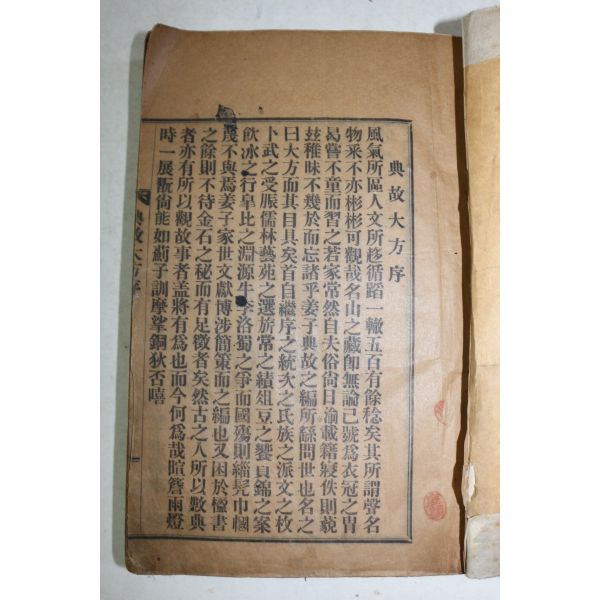 典故大方序
風氣所區人文所趍循蹈一轍五百有餘稔矣其所謂聲名
物釆不亦彬彬可觀哉名山之藏卽無論已號爲衣冠之胄
曷嘗不童而習之若家常然自夫俗尙日渝載籍寖佚則藐
玆稚昧不幾於而忘諸乎姜子典故之編所繇問世也名之
曰大方而其目具矣首自繼序之統次之氏族之派文之枚
卜武之受脤儒林藝苑之選旂常之績俎豆之饗貝錦之案
飮冰之行皐比之淵源牛李洛蜀之爭而國殤則緇髡巾幗
茂不與焉姜子家世文獻博涉簡策而之編也又困於楹書
之餘則不待金石之秘而有足徵者矣然古之人所以數典
者亦有所以觀故事者盖將有爲也而今何爲哉暄簷雨燈
時一展衚尙能如薊子訓摩挲銅狄否嘻
典故大方序